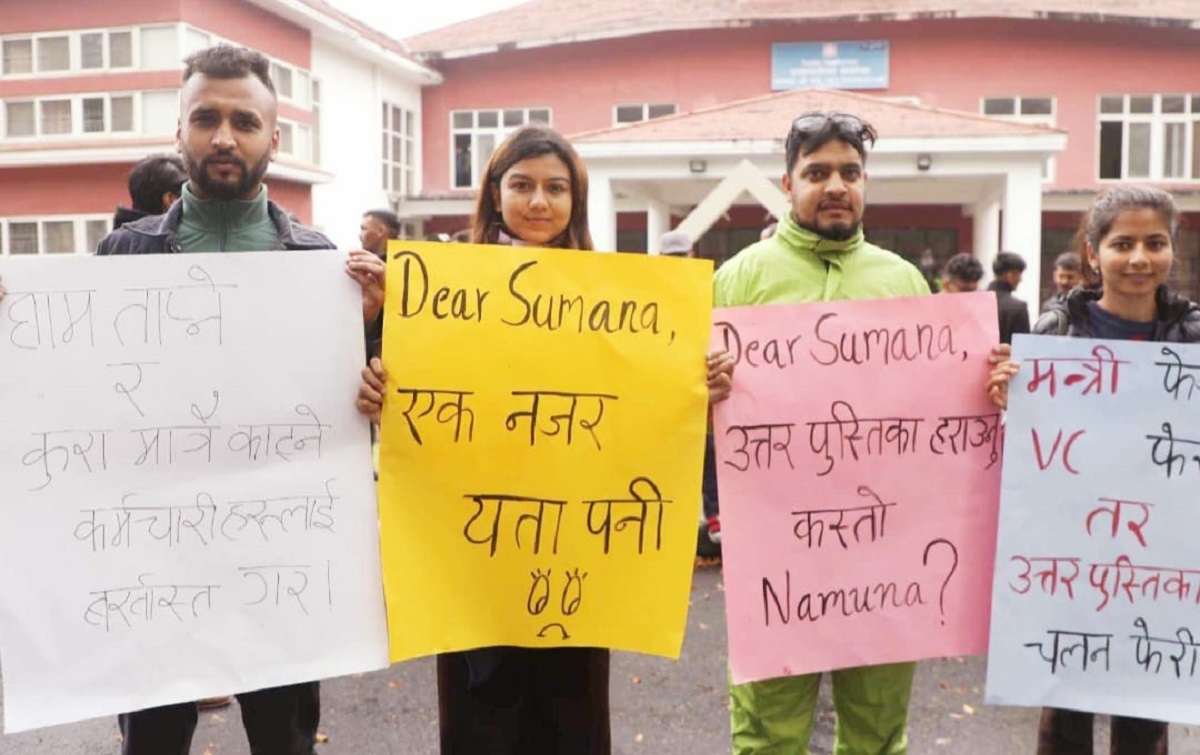 घाम ताप्ने
र
कुरा मात्रै काट्ने
कर्मचारीहरूलाई
गर।
Dear Sumana,
एक नजर
यता पनी
Dear Sumana,
उत्तर पुस्तिका हराउनु
कस्तो
Namuna?
मन्त्री फे
VC फे
तर
उत्तर पुस्तिका
चलन फेरी